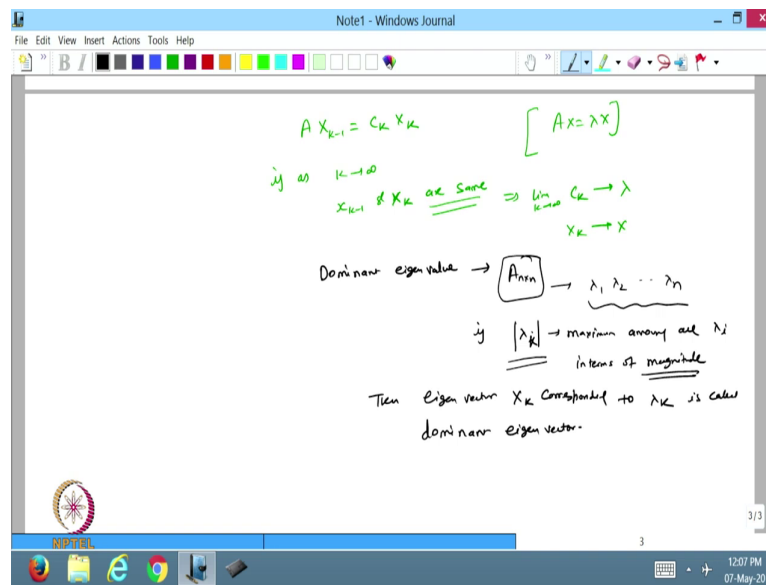 Note1 - Windows Journal
File Edit View Insert Actions Tools Help
B I
A X_{k-1} = C_k X_k [ Ax = λx ]
if as k → ∞
x_{k-1} & X_k are same ⇒ lim_{k→∞} C_k → λ
X_k → X
Dominant eigen value → A_{n×n} → λ_1 λ_2 ... λ_n
if |λ_k| → maximum among all λ_i
interms of magnitude
Then eigen vector X_k corresponded to λ_k is called
dominant eigen vector.
3/3
NPTEL
3
12:07 PM
07-May-20